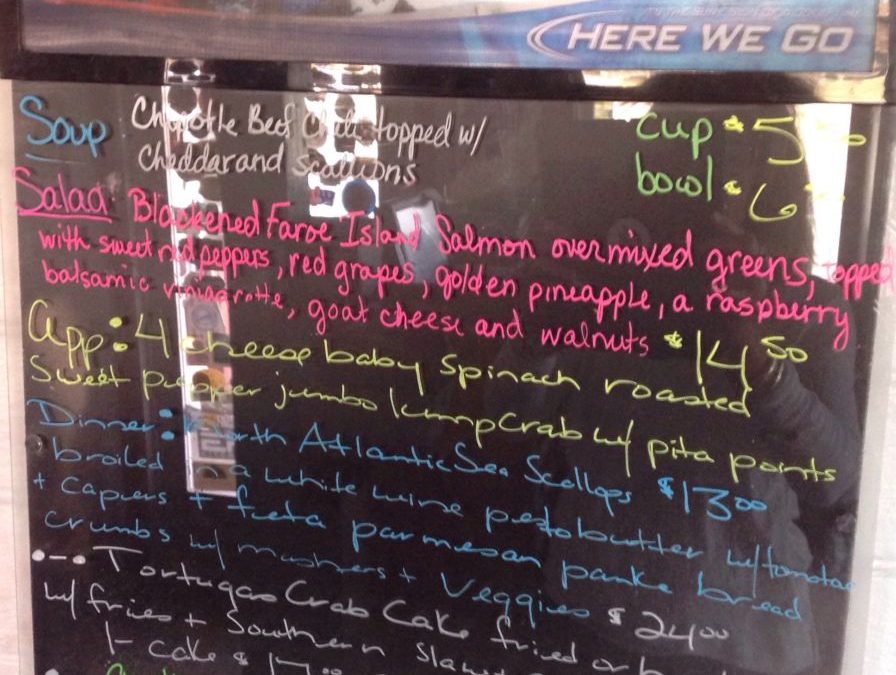 HERE WE GO
Soup: Chipotle Beef Chili topped w/
cheddar and scallions
cup $5
bowl $6
Salad: Blackened Faroe Island Salmon over mixed greens, topped
with sweet red peppers, red grapes, golden pineapple, a raspberry
balsamic vinigarette, goat cheese and walnuts $14 50
App: 4 cheese baby spinach roasted
sweet pepper jumbo lump crab w/ pita points
$13 00
Dinner: North Atlantic Sea Scallops
broiled in a white wine pesto butter w/ tomatoe
+ capers + feta parmesan panko bread
crumbs w/ mashers + Veggies $24 00
Tortugas Crab Cake fried or
w/ fries + Southern Slaw
1- cake $17 00